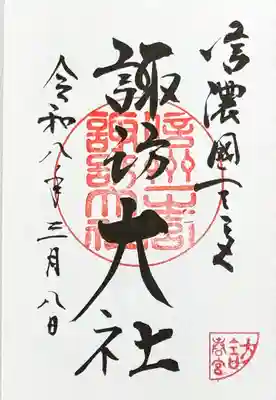 信濃國一之宮
諏訪大社
令和八年三月八日
信州一之宮
諏訪大社
下諏訪
春宮